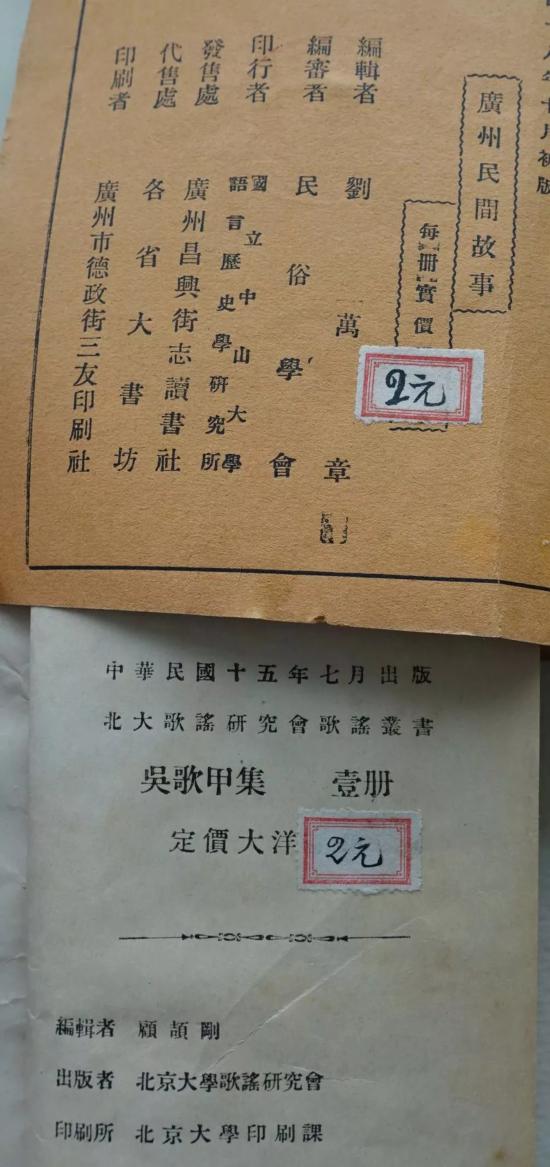 年十月初版
廣州民間故事
每冊實價
2元
編輯者 劉萬章
編審者 民俗學會
印行者 國立中山大學
語言歷史學研究所
發售處 廣州昌興街志讀書社
代售處 各省大書坊
印刷者 廣州市德政街三友印刷社
中華民國十五年七月出版
北大歌謠研究會歌謠叢書
吳歌甲集 壹册
定價大洋 2元
編輯者 顧頡剛
出版者 北京大學歌謠研究會
印刷所 北京大學印刷課